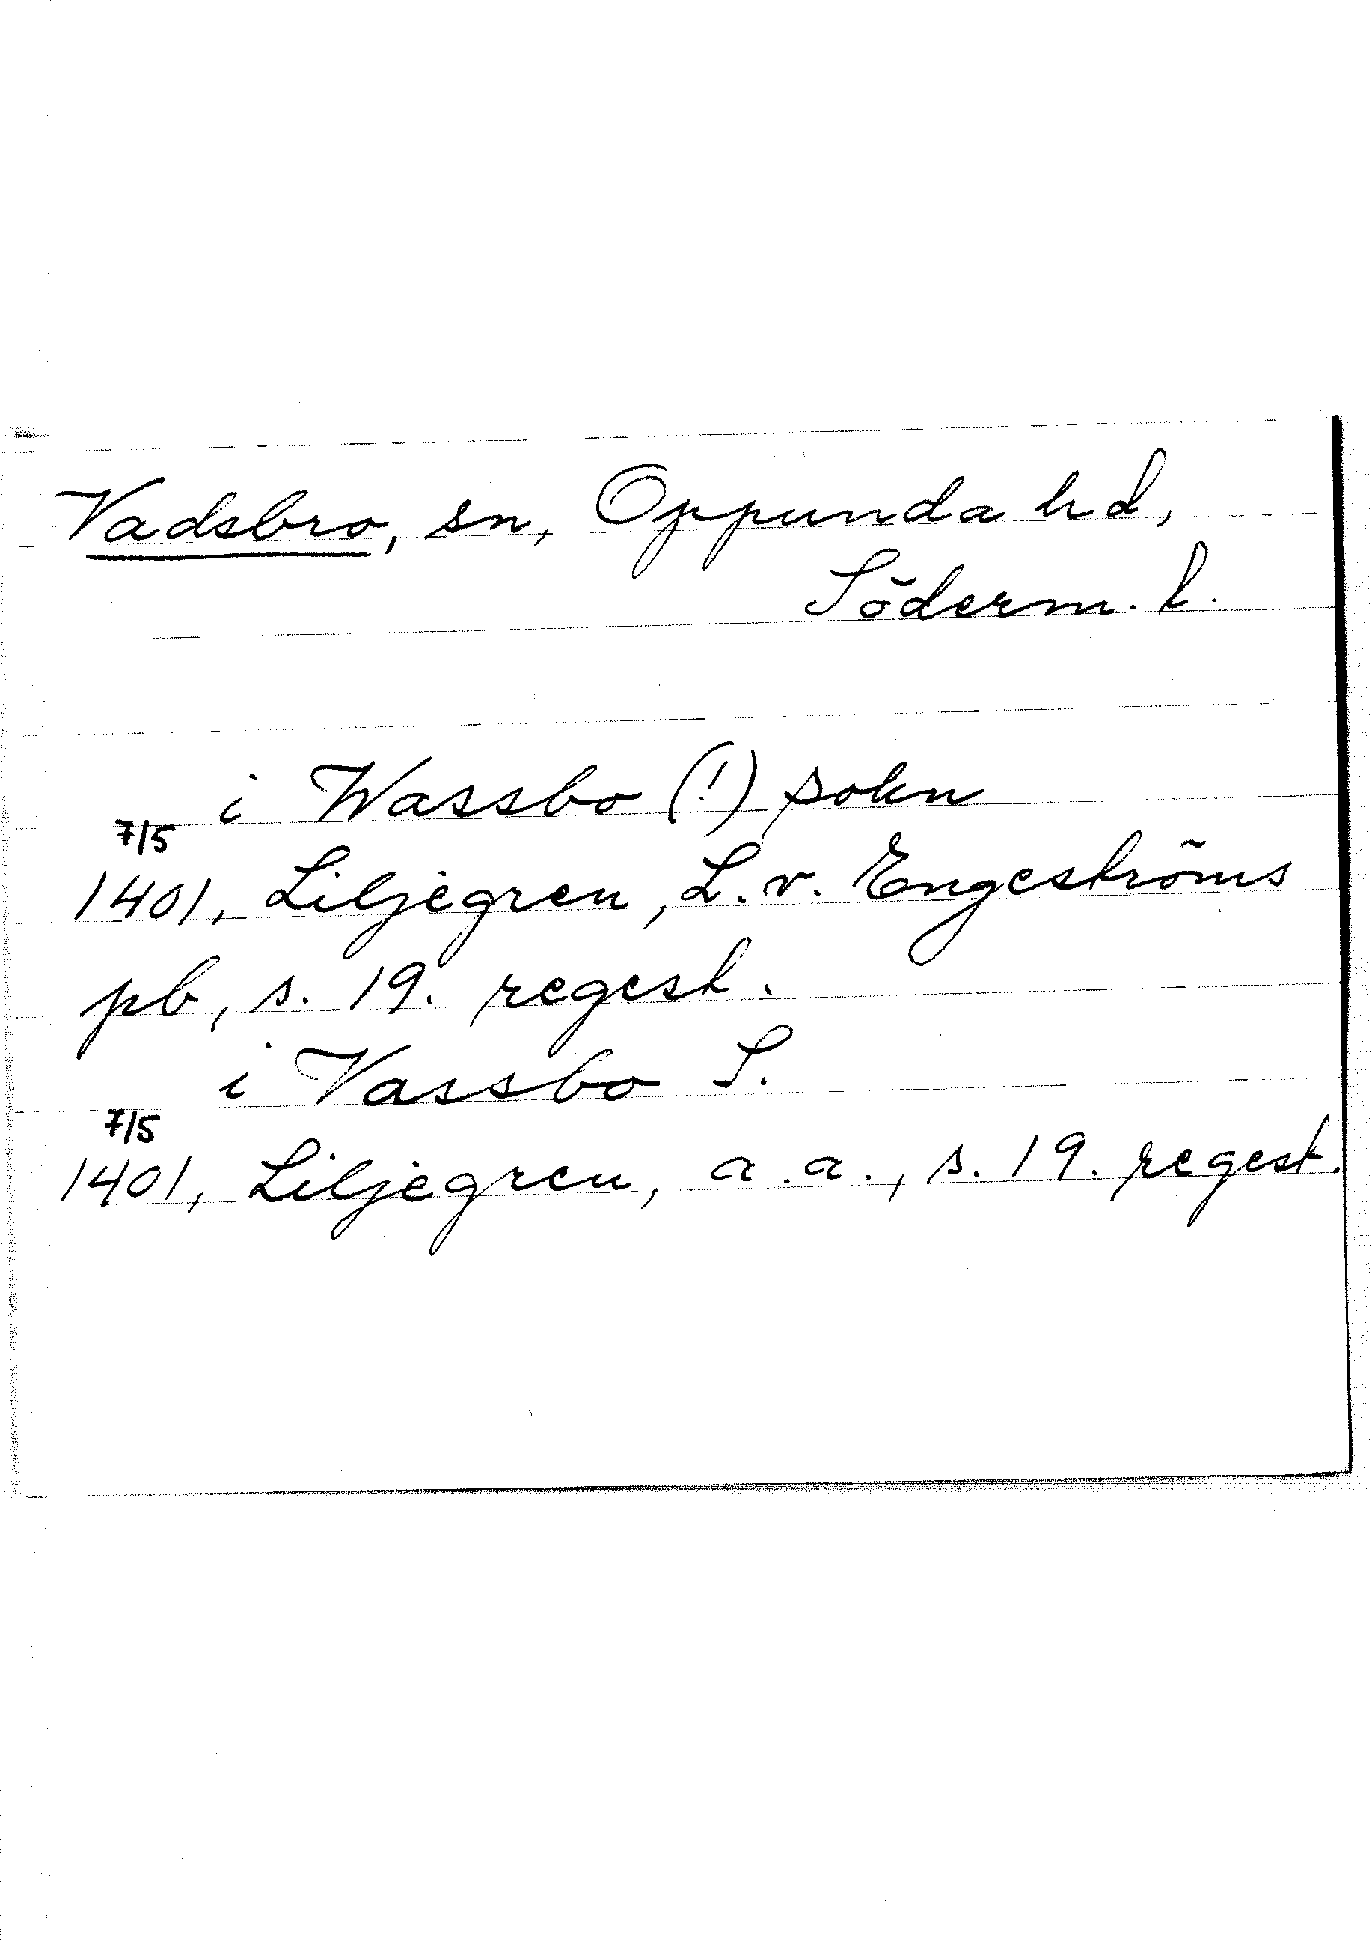 Vadsbro, sn, Oppunda hd,
Söderm. l.
i Wassbo (!) sokn
7/5
1401, Liljegren, L. v. Engeströms
pb, s. 19. regest.
i Vassbo S.
7/5
1401, Liljegren, a.a., s. 19. regest.